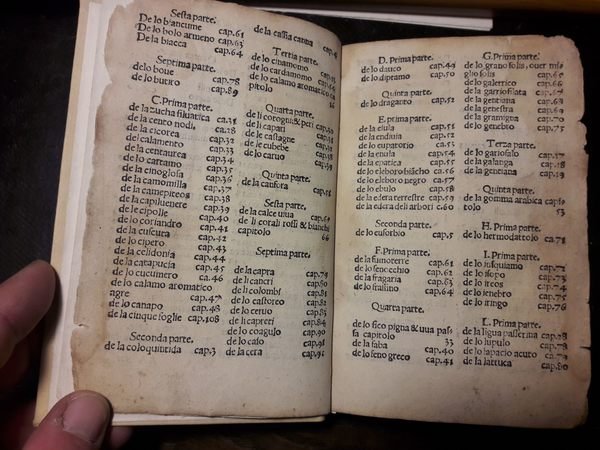 Sesta parte.
De lo biancume cap.61
De lo bolo armeno cap.63
De la biacca cap.64
Septima parte.
de lo boue cap.78
de lo butiro cap.89
C. Prima parte.
de la zucha siluatica ca.31
de la cento nodi ca.28
de la cicorea cap.32
del calamento cap.33
de la centaurea cap.34
de lo cartamo cap.35
de la cinoglosa cap.36
de la camomilla cap.37
de la camepiteos cap.38
de la capiluenere cap.39
de le cipolle cap.40
de lo coriandro cap.41
de la cuscuta cap.42
de lo cipero cap.43
de la celidonia cap.44
de la catapucia ca.45
de lo cucumero ca.46
de lo calamo aromatico
agre cap.47
de lo canapo cap.48
de la cinque foglie cap.108
Seconda parte.
de la coloquintida cap.3
de la cassia canna
Tertia parte.
de lo cinamomo
de lo cardamomo
de lo calamo aromatico ca
pitolo 16
Quarta parte.
de li capari
de le castagne
de le cubebe cap.38
de lo caruo
Quinta parte.
de la canfora
Sesta parte
de la calce uiua
de li corali rossi & bianchi
capitolo 66
Septima parte.
de la capra
de li cancri cap.80
de li colombi cap.81
de lo castoreo cap.82
de lo ceruo cap.83
de li capreri cap.84
de lo coagulo cap.90
de lo caso cap.91
de la cera cap.92
D. Prima parte.
de lo dauco cap.49
de lo dipramo cap.50
Quinta parte
de lo draganto cap.52
E. prima parte.
de la eiula cap.51
de la endiuia cap.52
de lo eupatorio cap.53
de la enula cap.54
de la epatica cap.55
de lo eleboro biãcho ca.56
de lo eleboro negro ca.57
de lo ebulo cap.58
de la edera terrestre cap.59
de la edera deli arbori c.60
Seconda parte
de lo euforbio cap.5
F. Prima parte.
de la fumoterre cap.61
de lo fenocchio cap.62
de la fraga cap.63
de lo frassino cap.64
Quarta parte.
de lo fico pigna & uua pas-
sa capitolo
de la faba cap.40
de lo feno greco cap.41
G. Prima parte.
de lo grano solis, ouer mi
glio solis cap.65
de lo galerico cap.66
de la garriofilata cap.67
de la gentiana cap.68
de la genestra cap.69
de la gramigna cap.70
de lo genebro cap.75
Terza parte.
de lo gariofalo cap.17
de la galanga cap.18
de la gentiana cap.19
Quinta parte.
de la gomma arabica capi
tolo 53
H. Prima parte.
de lo hermodattolo ca.71
I. Prima parte.
de lo iusquiamo cap.72
de lo isopo cap.73
de lo ireos cap.74
de lo ienebro cap.75
de lo iringo cap.76
L. Prima parte.
de la ligua passerina
de lo lupulo cap.78
de lo lapacio acuto cap.79
de la lattuca cap.80